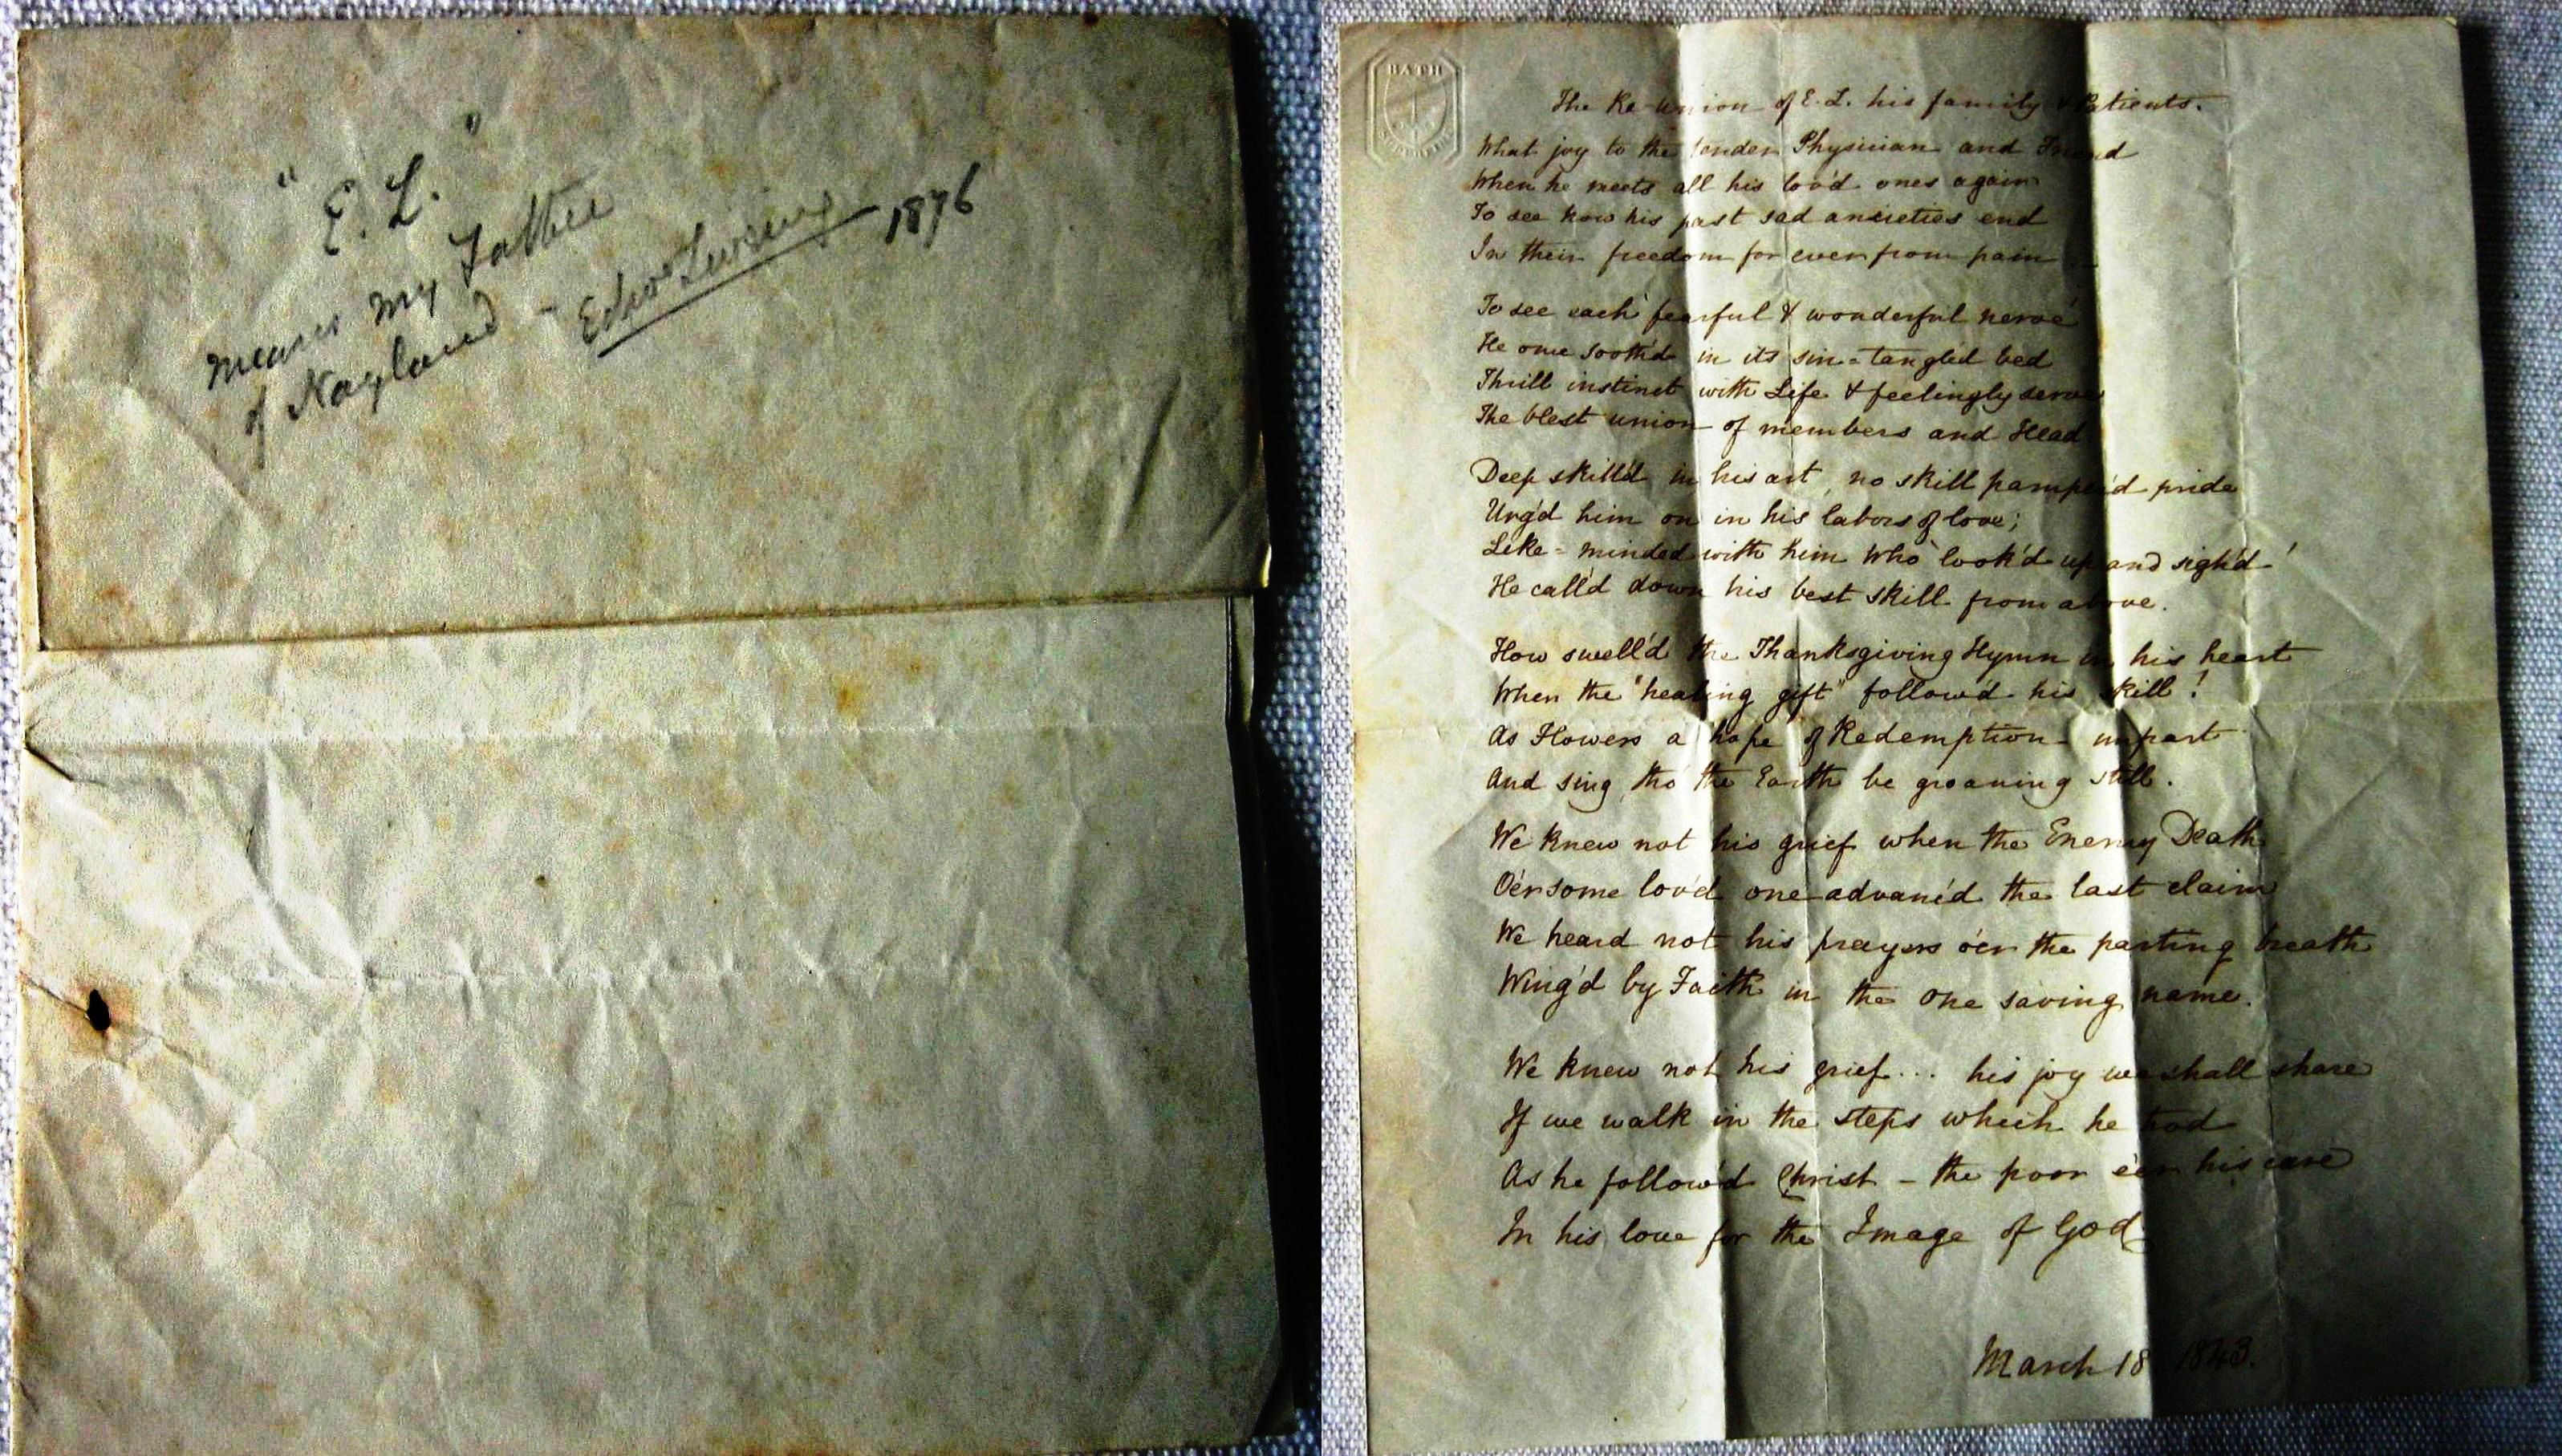 " E. L. "
means my Father
of Nayland - Edwd Liveing 1876
BATH
The Re-union of E. L. his family & Patients.
What joy to the tender Physician and Friend
When he meets all his lov'd ones again
To see how his past sad anxieties end
In their freedom for ever from pain
To see each fearful & wonderful nerve
He once sooth'd in its sin-tangled bed
Thrill instinct with Life & feelingly serve
The blest union of members and Head
Deep skill'd in his art, no skill pamper'd pride
Urg'd him on in his labors of love;
Like-minded with him Who 'look'd up and sigh'd'
He call'd down his best skill from above.
How swell'd the Thanksgiving Hymn in his heart
When the "healing gift" follow'd his skill!
As Flowers a hope of Redemption impart
And sing, tho' the Earth be groaning still.
We knew not his grief when the Enemy Death
O'er some lov'd one advanc'd the last claim
We heard not his prayers o'er the parting breath
Wing'd by Faith in the One saving name.
We knew not his grief... his joy we shall share
If we walk in the steps which he trod
As he follow'd Christ - the poor e'er his care
In his love for the Image of God
March 18 1843.